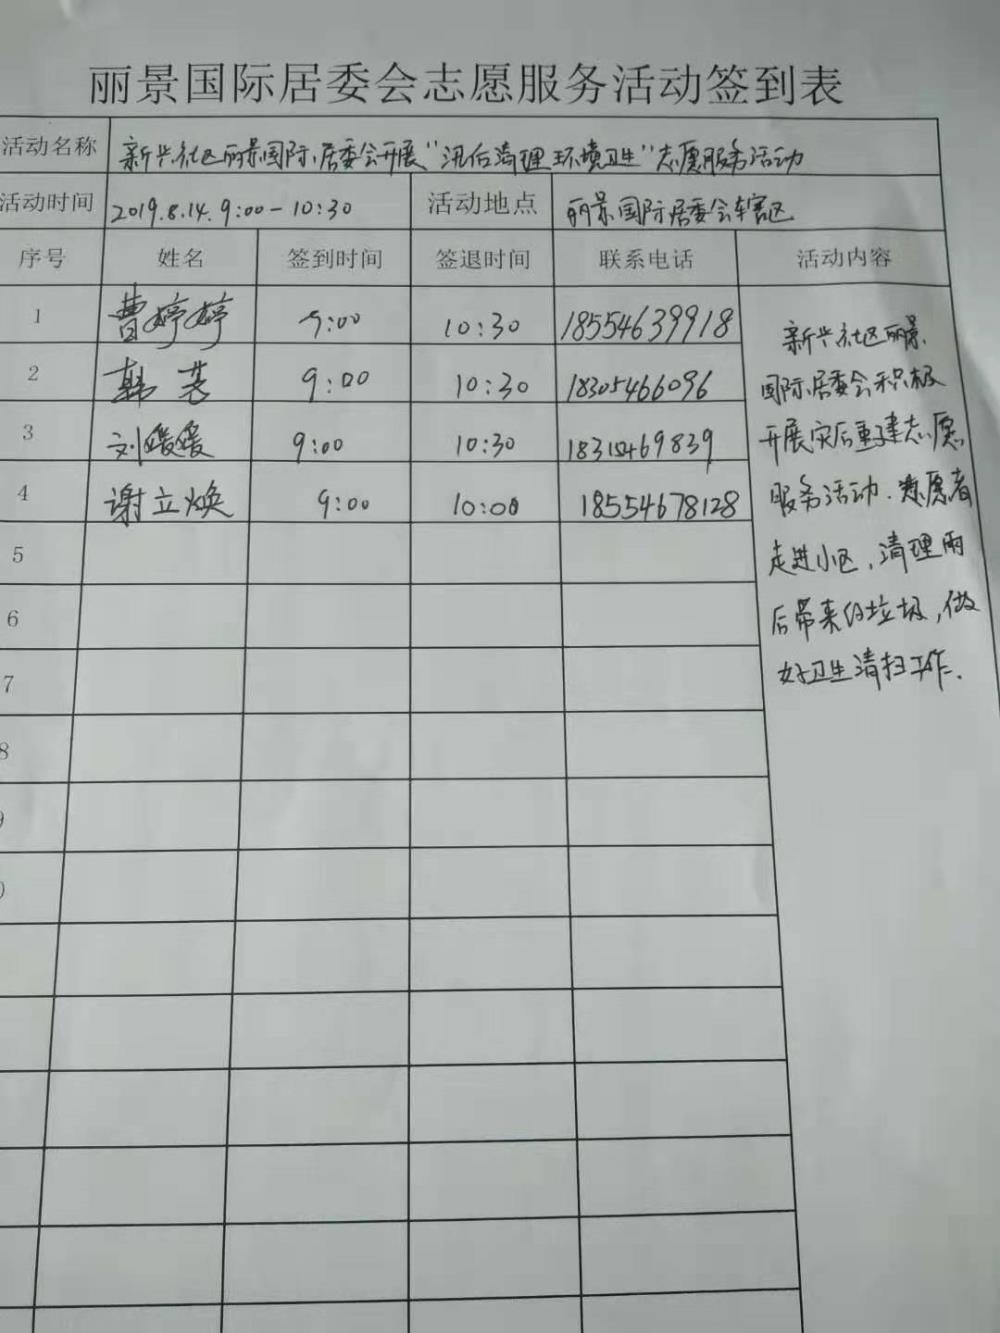 丽景国际居委会志愿服务活动签到表
活动名称 新兴社区丽景国际居委会开展“汛后清理环境卫生”志愿服务活动
活动时间 2019.8.14. 9:00-10:30 活动地点 丽景国际居委会辖区
序号 姓名 签到时间 签退时间 联系电话 活动内容
1 曹婷婷 9:00 10:30 18554639918
2 韩 9:00 10:30 18305466096
3 刘媛媛 9:00 10:30
4 谢立焕 9:00 10:00 18554678128
5
6
7
8
新兴社区丽景
国际居委会积极
开展灾后重建志愿
服务活动.志愿者
走进小区,清理雨
后带来的垃圾,做
好卫生清扫工作.